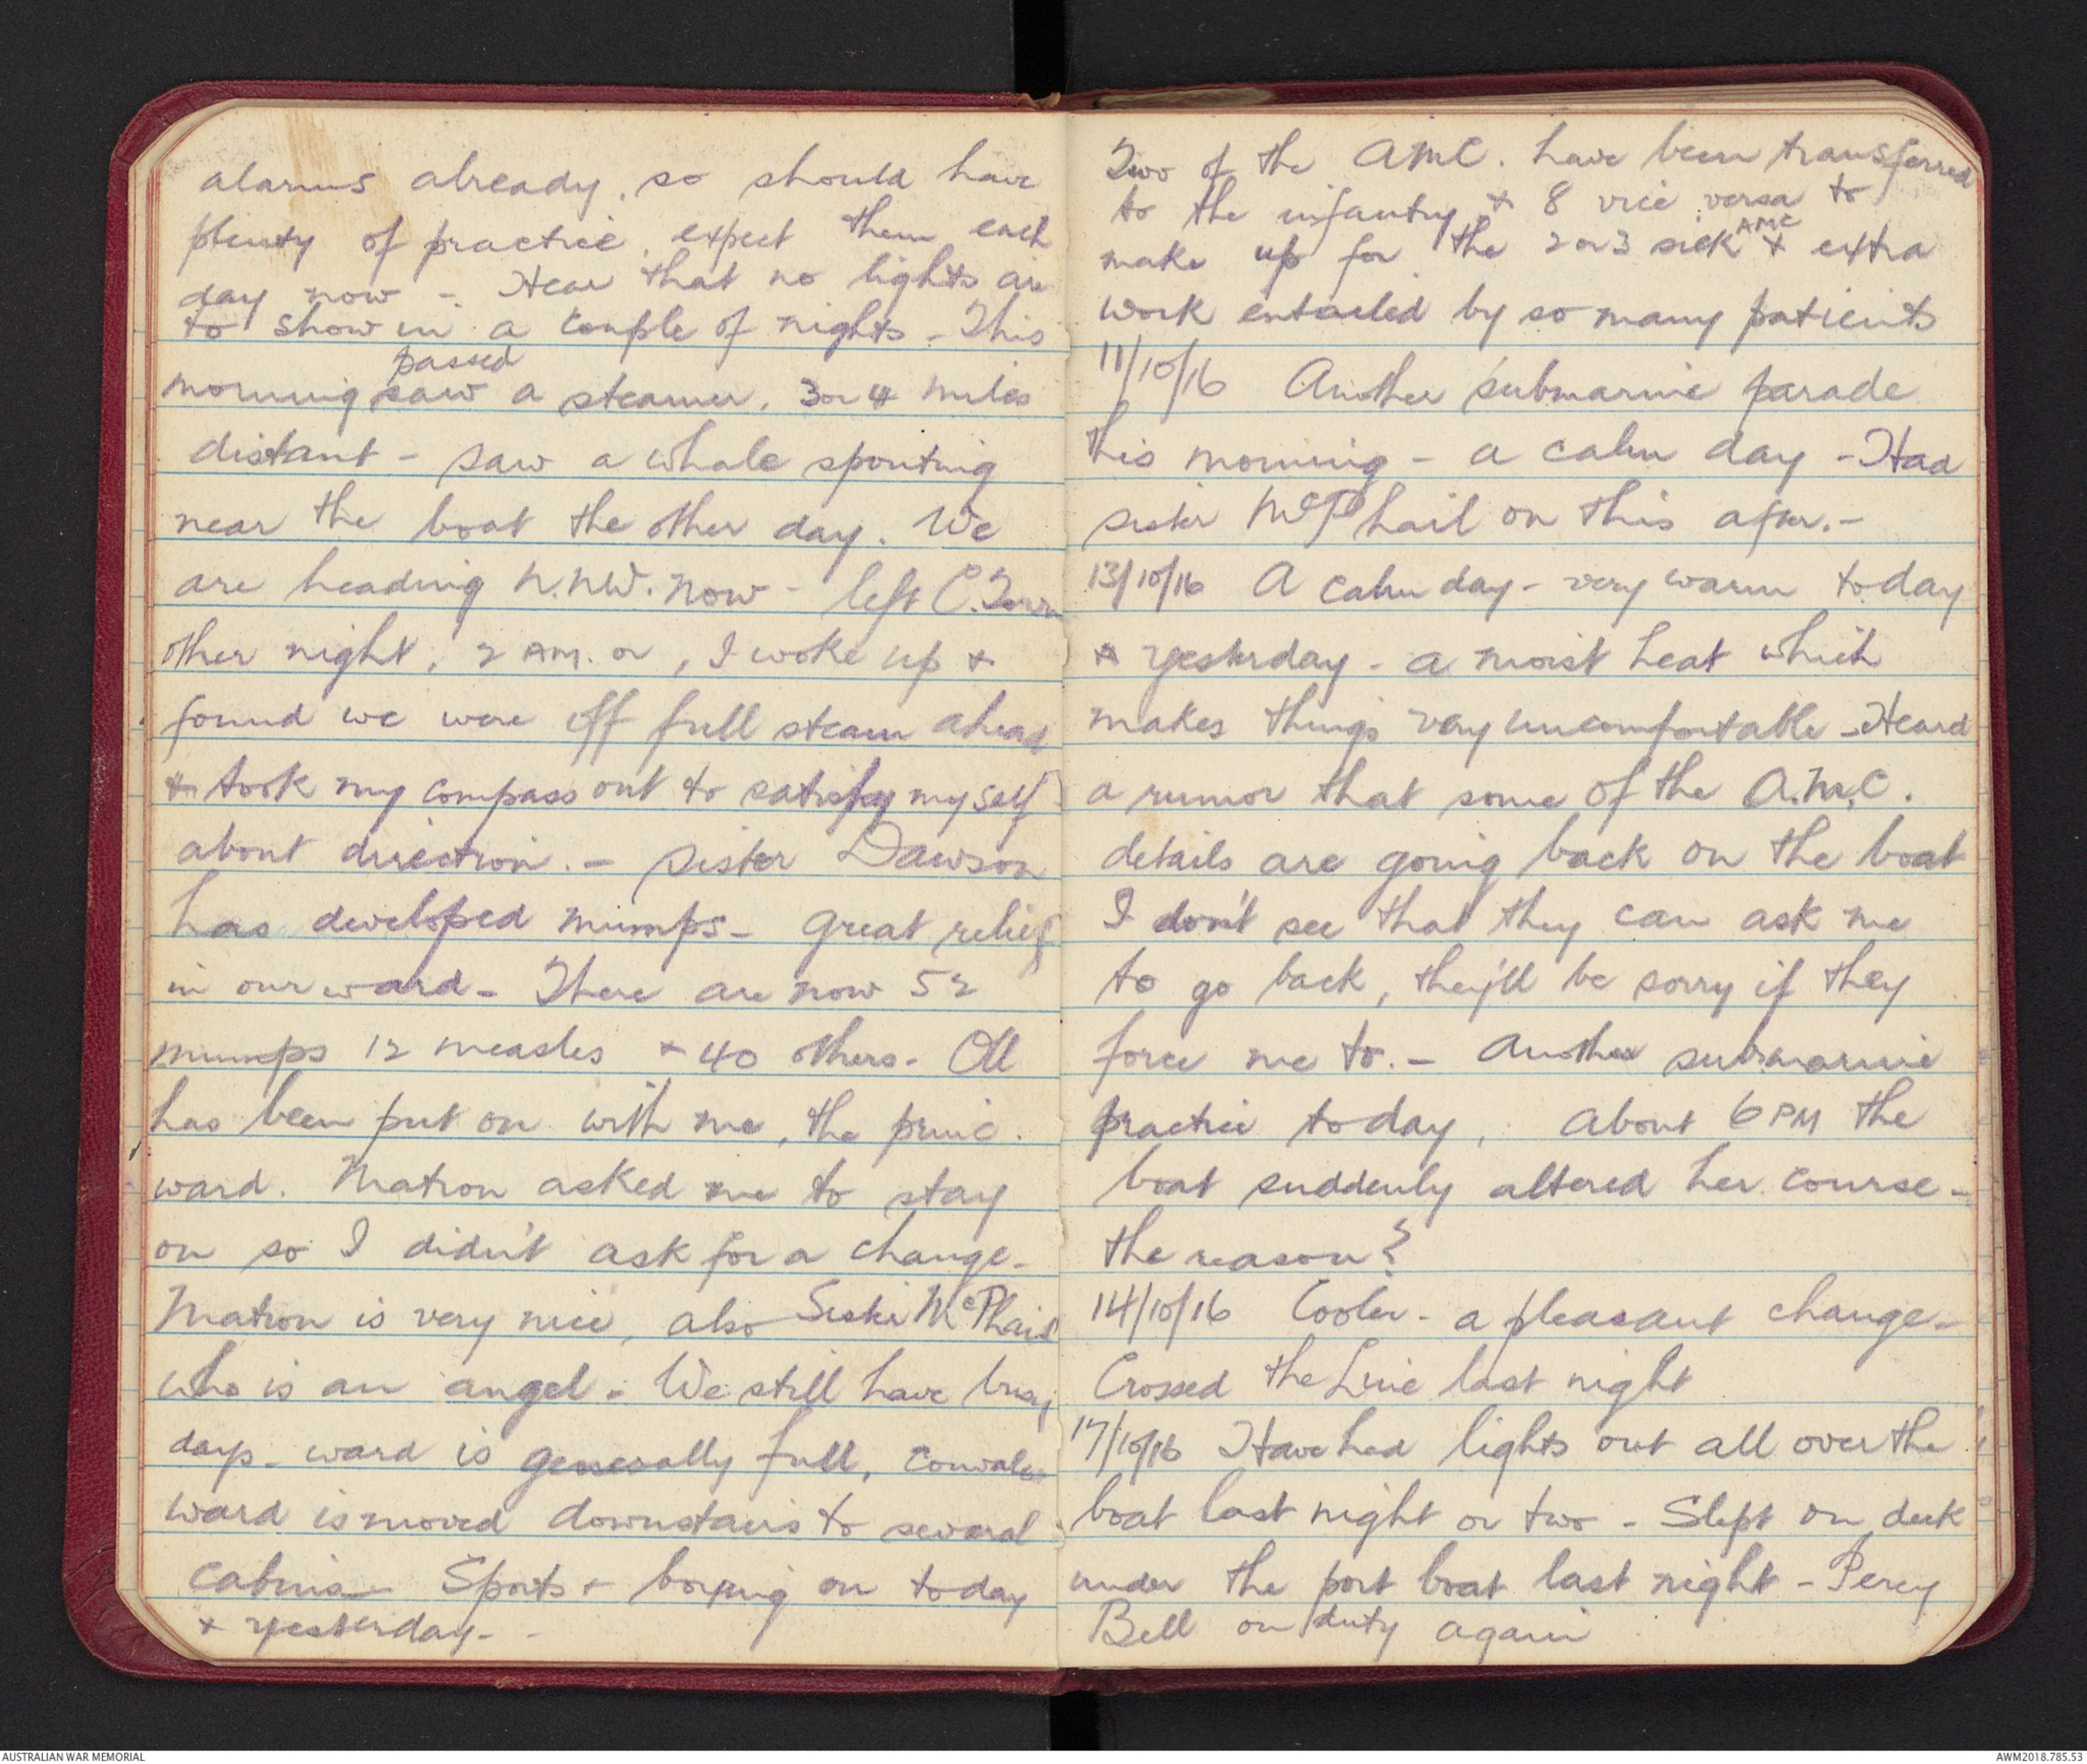 alarms already, so should have
plenty of practice, expect them each
day now - Hear that no lights are
to show in a couple of nights - This
passed
morning saw a steamer, 3 or 4 miles
distant - saw a whale spouting
near the boat the other day. We
are heading N.NW. now - left C. Town
other night, 2 AM. or, I woke up &
found we were off full steam ahead
& took my compass out to satisfy myself
about direction. - Sister Dawson
has developed mumps - Great relief
in our ward - There are now 52
mumps 12 measles & 40 others.
has been put on with me, the princ.
ward. Matron asked me to stay
on so I didn't ask for a change -
Matron is very nice, also Sister McPhail
who is an angel - We still have busy
days - ward is generally full,
ward is moved downstairs to several
cabins - Sports & boxing on today
& yesterday -
Two of the AMC. have been transferred
to the infantry & 8 vice versa to
make up for the 2 or 3 sick AMC & extra
work entailed by so many patients
11/10/16 Another submarine parade
this morning - a calm day - Had
sister McPhail on this after. -
13/10/16 A calm day - very warm today
& yesterday - a moist heat which
makes things very uncomfortable - Heard
a rumor that some of the A.M.C.
details are going back on the boat
I don't see that they can ask me
to go back, they'll be sorry if they
force me to. - Another submarine
practice today, About 6 PM the
boat suddenly altered her course -
the reason?
14/10/16 Cooler - a pleasant change -
Crossed the Line last night
17/10/16 Have had lights out all over the
boat last night or two - Slept on deck
under the port boat last night - Percy
Bell on duty again
AUSTRALIAN WAR MEMORIAL
AWM2018.785.53